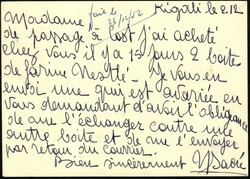 Kigali le 2.12
Madame fait le
23/12/52
de passage à l'est j'ai acheté
chez vous il y a 15 jours 2 boîtes
de farine Nestlé. Je vous en
envoi une qui est avariée en
vous demandant d'avoir l'obligeance
de me l'échanger contre une
autre boite et de me l'envoyer
par retour du courrier.
Bien sincèrement